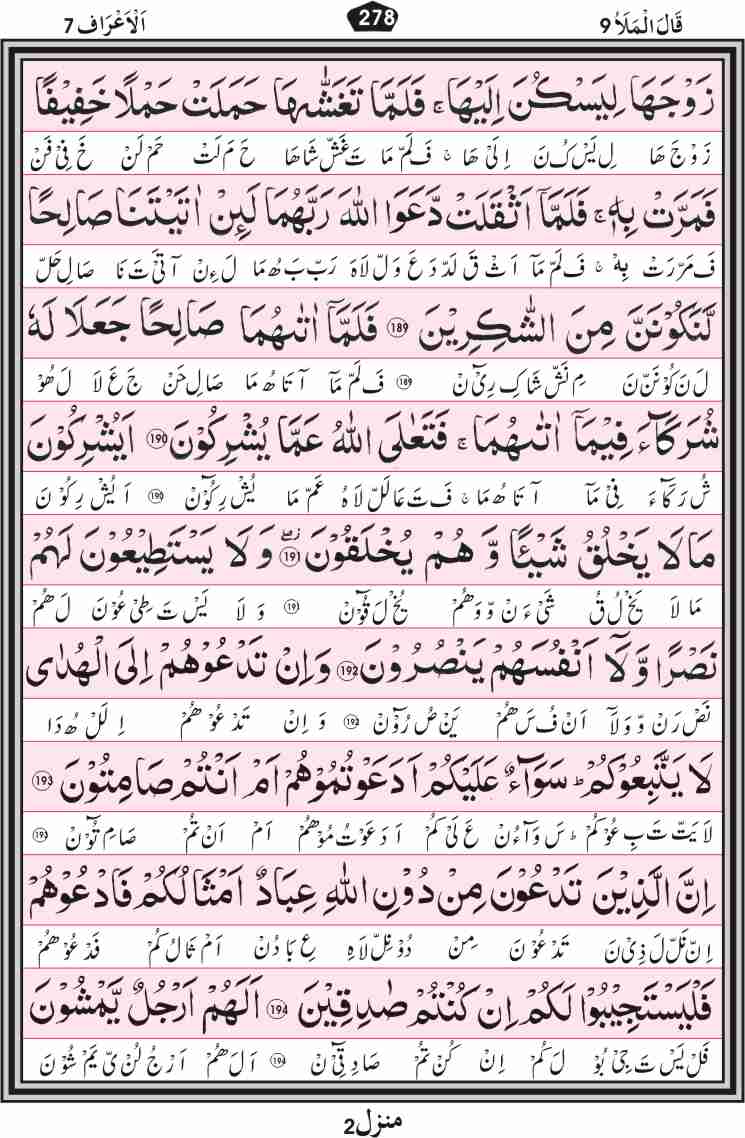 قَالَ الْمَلَاُ 9 278 اَلْاَعْرَاف 7
زَوْجَهَا لِيَسْكُنَ اِلَيْهَا ۚ فَلَمَّا تَغَشّٰىهَا حَمَلَتْ حَمْلًا خَفِيْفًا
زَوْجَ هَا لِ يَسْ كُ نَ اِ لَىْ هَا ۚ فَ لَمّ مَا تَ غَشّ شَا هَا حَ مَ لَتْ حَمْ لَنْ خَ فِىْ فَنْ
فَمَرَّتْ بِهٖ ۚ فَلَمَّاۤ اَثْقَلَتْ دَّعَوَا اللّٰهَ رَبَّهُمَا لَىِٕنْ اٰتَيْتَنَا صَالِحًا
فَ مَرّ رَتْ بِهٖ ۚ فَ لَمّ مَاۤ اَثْ قَ لَدّ دَ عَ وَلّ لَاهَ رَبّ بَ هُ مَا لَ ءِنْ آ تَىْ تَ نَا صَا لِ حَلّ
لَّنَكُوْنَنَّ مِنَ الشّٰكِرِيْنَ ۝189 فَلَمَّاۤ اٰتٰىهُمَا صَالِحًا جَعَلَا لَهٗ
لَ نَ كُوْ نَنّ نَ مِ نَشّ شَا كِ رِىْ نْ ۝189 فَ لَمّ مَاۤ آ تَا هُ مَا صَا لِ حَنْ جَ عَ لَا لَ هُوْ
شُرَكَآءَ فِيْمَاۤ اٰتٰىهُمَا ۚ فَتَعٰلَى اللّٰهُ عَمَّا يُشْرِكُوْنَ ۝190 اَيُشْرِكُوْنَ
شُ رَ كَآ ءَ فِىْ مَاۤ آ تَا هُ مَا ۚ فَ تَ عَا لَلّ لَاهُ عَمّ مَا يُشْ رِ كُوْنْ ۝190 اَ يُشْ رِ كُوْ نَ
مَا لَا يَخْلُقُ شَيْـًٔا وَّ هُمْ يُخْلَقُوْنَ ۝191ۖ وَ لَا يَسْتَطِيْعُوْنَ لَهُمْ
مَا لَا يَخْ لُ قُ شَىْ ءَ نْ وّ وَ هُمْ يُخْ لَ قُوْنْ ۝191 وَ لَا يَسْ تَ طِىْ عُوْ نَ لَ هُمْ
نَصْرًا وَّ لَاۤ اَنْفُسَهُمْ يَنْصُرُوْنَ ۝192 وَاِنْ تَدْعُوْهُمْ اِلَى الْهُدٰى
نَصْ رَ نْ وّ وَ لَاۤ اَنْ فُ سَ هُمْ يَنْ صُ رُوْنْ ۝192 وَ اِنْ تَدْ عُوْ هُمْ اِ لَلْ هُ دَا
لَا يَتَّبِعُوْكُمْ ؕ سَوَآءٌ عَلَيْكُمْ اَدَعَوْتُمُوْهُمْ اَمْ اَنْتُمْ صَامِتُوْنَ ۝193
لَا يَتّ تَ بِ عُوْ كُمْ ؕ سَ وَآ ءُنْ عَ لَىْ كُمْ اَ دَ عَوْ تُ مُوْ هُمْ اَمْ اَنْ تُمْ صَا مِ تُوْنْ ۝193
اِنَّ الَّذِيْنَ تَدْعُوْنَ مِنْ دُوْنِ اللّٰهِ عِبَادٌ اَمْثَالُكُمْ فَادْعُوْهُمْ
اِنّ نَلّ لَ ذِىْ نَ تَدْ عُوْ نَ مِنْ دُوْ نِلّ لَاهِ عِ بَا دُنْ اَمْ ثَا لُ كُمْ فَدْ عُوْ هُمْ
فَلْيَسْتَجِيْبُوْا لَكُمْ اِنْ كُنْتُمْ صٰدِقِيْنَ ۝194 اَلَهُمْ اَرْجُلٌ يَّمْشُوْنَ
فَلْ يَسْ تَ جِىْ بُوْ لَ كُمْ اِنْ كُنْ تُمْ صَا دِ قِىْ نْ ۝194 اَ لَ هُمْ اَرْ جُ لُنْ ىّ يَمْ شُوْ نَ
منزل2